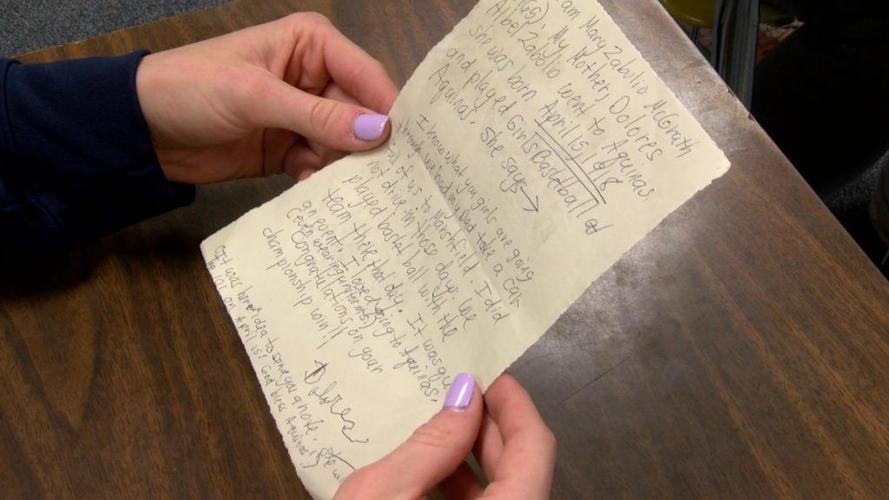 am Mary Zabolio McGrath
(65). My Mother, Dolores
Abel Zabolio went to Aquinas
she was born April 15, 1918
and played Girls Basketball at
Aquinas. She says →
I know what you girls are going
through. We had my dad take a car
full of us to Marshfield. I did
not drive in those days. We
played basket ball with the
team there that day. It was
an event. I loved going to Aquinas.
(even wearing uniforms)
Congratulations on your
championship win!!
Dolores
(It was her idea to send you a note. She
be 101 on April 15! God bless Aquinas!)